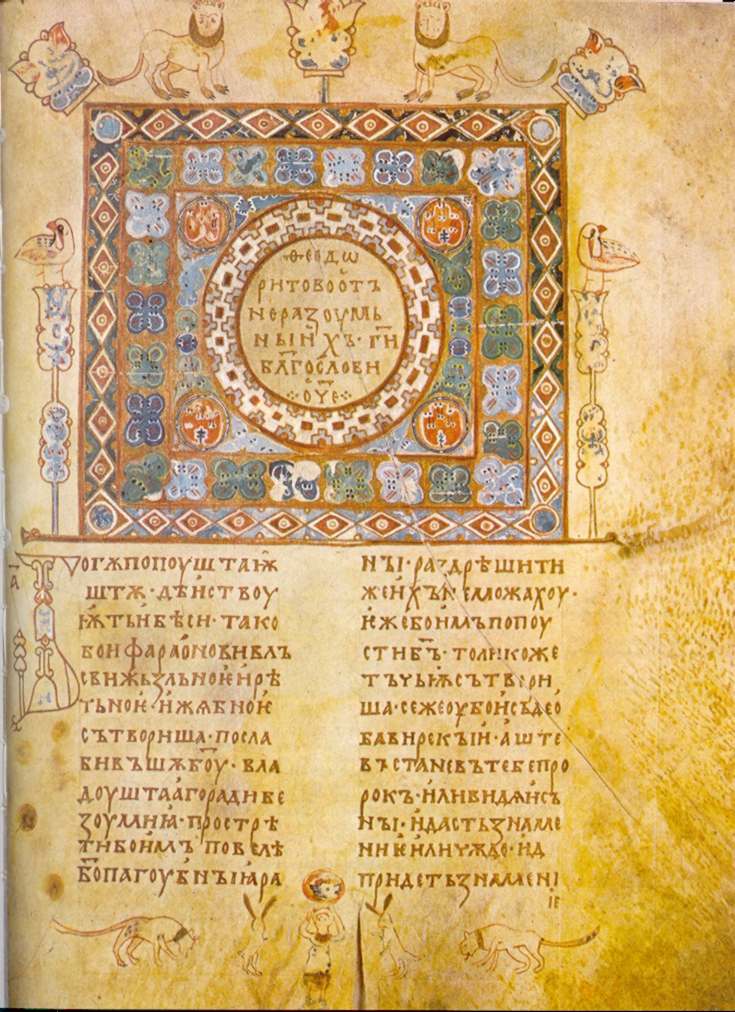 ·Ѳ·ЕОДѠ
РИТОВООТЪ
НЕРАЗОУМЬ
НЫИХЪ·ГИ҃
БЛ҃ГОСЛОВИ
ОЧ҃Е
А҃
БОГѪПОПОУШТАѬ
ШТѪ·ДѢИСТВОУ
ѬТЬИБѢСИ·ТАКО
БОИФАРАОНОВИВЛЪ
СВИЖЬЗЛЬНОѤИРѢ
ТЬНОѤ·ИЖѦБНОѤ
СЪТВОРИША·ПОСЛА
БИВЪШѪБО҃У·ВЛА
ДОУШТААГОРАДИБЕ
ЗОУМИꙖ·ПРОСТРѢ
ТИБОИМЪПОВЕЛѢ
Б҃ОПАГОУБНЪІꙖРА
НЪІ·РАЗДРѢШИТИ
ЖЕИХЪНЕМОЖАХОУ·
ИЖЕБОИМЪПОПОУ
СТИБ҃Ъ·ТОЛИКОЖЕ
ТЪЧЬѬСЪТВОРИ
ША·СЕЖЕОУБОИСЪДЕО
БАВИРЕКЪІИ·АШТЕ
ВЪСТАНЕВЪТЕБЕПРО
РОКЪ·ИЛИВИДѦИСЪ
НЪІ·ИДАСТЬЗНАМЕ
НИѤИЛИЧЮДО·ИД
ПРИДЕТЬЗНАМЕНІ
ІЕ